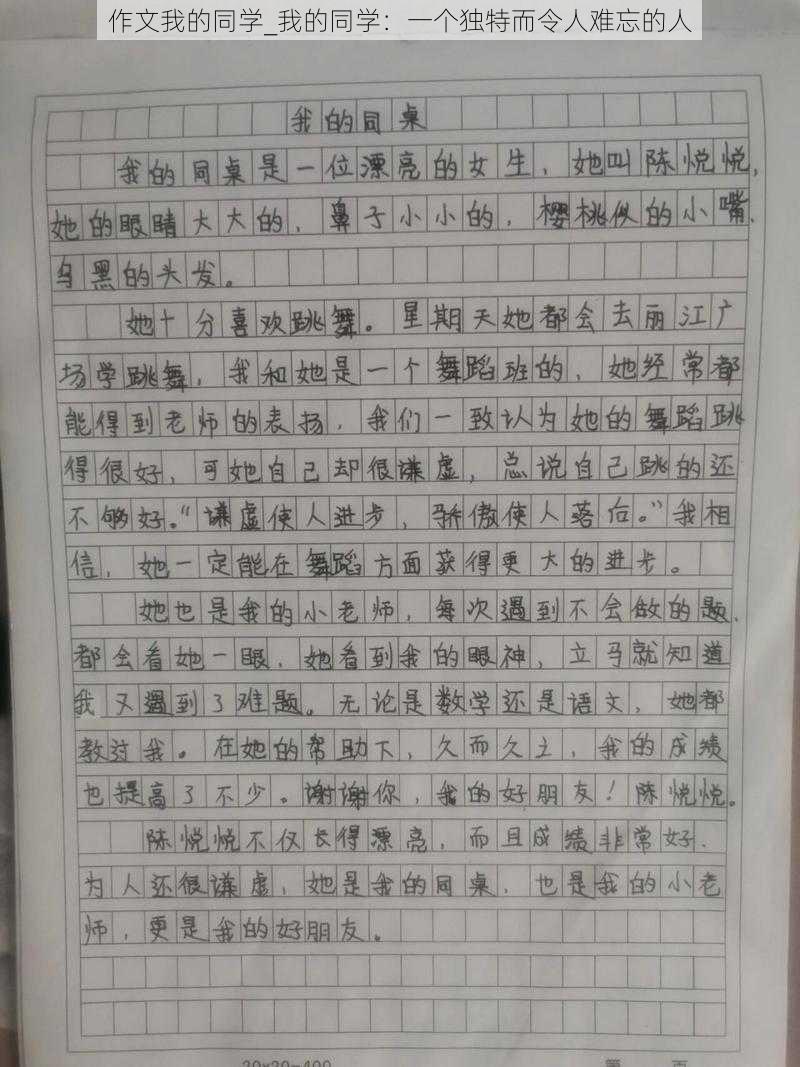 作文我的同学_我的同学：一个独特而令人难忘的人
我的同桌
我的同桌是一位漂亮的女生，她叫陈悦悦，
她的眼睛大大的，鼻子小小的，樱桃似的小嘴，
乌黑的头发。
她十分喜欢跳舞。星期天她都会去丽江广
场学跳舞，我和她是一个舞蹈班的，她经常都
能得到老师的表扬，我们一致认为她的舞蹈跳
得很好，可她自己却很谦虚，总说自己跳的还
不够好。“谦虚使人进步，骄傲使人落后。”我相
信，她一定能在舞蹈方面获得更大的进步。
她也是我的小老师，每次遇到不会做的题，
都会看她一眼，她看到我的眼神，立马就知道
我又遇到了难题。无论是数学还是语文，她都
教过我。在她的帮助下，久而久之，我的成绩
也提高了不少。谢谢你，我的好朋友！陈悦悦。
陈悦悦不仅长得漂亮，而且成绩非常好，
为人还很谦虚，她是我的同桌，也是我的小老
师，更是我的好朋友。
20×20=400
第 页